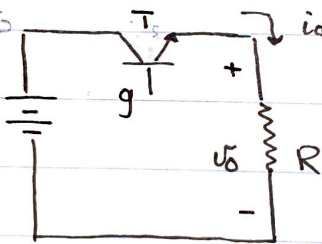 Ts io
+
g
υo R
-